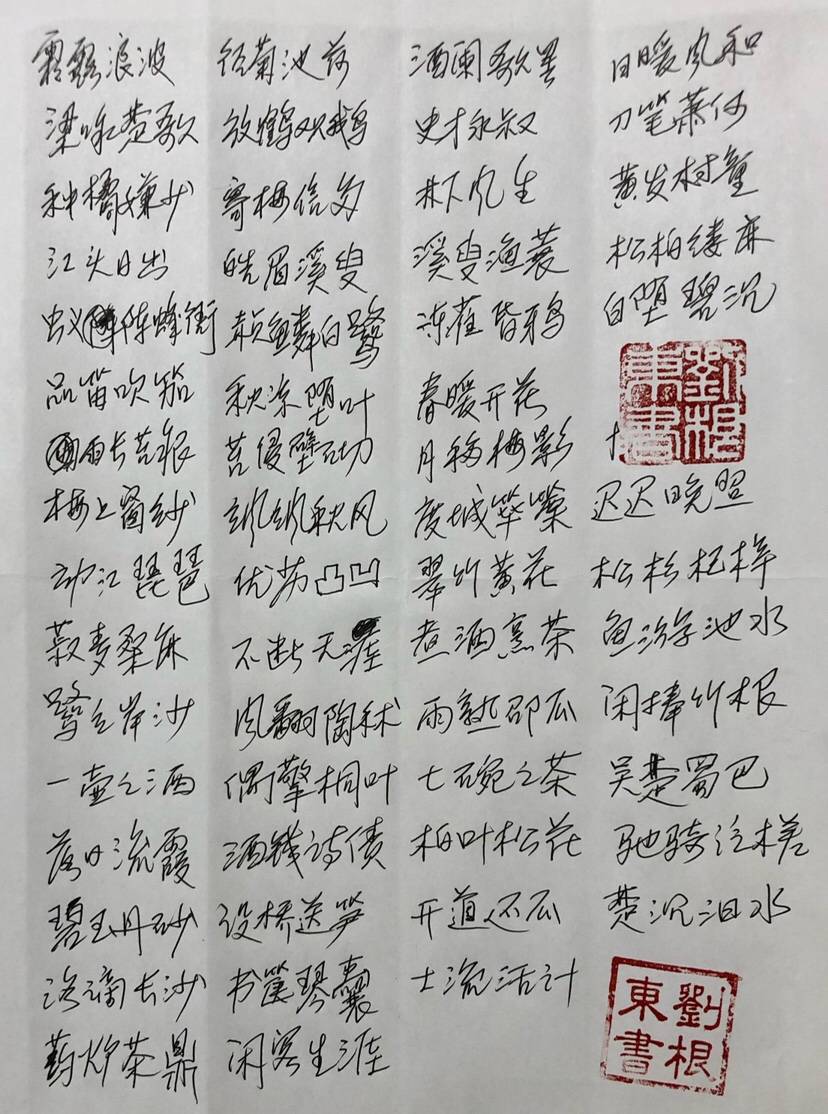 霜露浪波
径菊池荷
酒阑歌罢
日暖风和
梁咏楚歌
放鹤观鹅
史才永叔
刀笔萧何
种橘嫌少
寄梅信多
林下风生
黄发村童
江头日出
皓眉溪叟
溪叟渔蓑
松柏缕麻
蚁阵蜂衙
赪鳞白鹭
冻雀昏鸦
白堕碧沉
品笛吹笳
秋凉堕叶
春暖开花
雨长苔痕
苔侵壁切
月移梅影
梅上窗纱
飒飒秋风
度城筚篥
迟迟晚照
翠竹黄花
松杉杞梓
菽麦桑麻
不断天涯
煮酒烹茶
鱼游池水
鹭立岸沙
风翻陶秫
雨熟邵瓜
闲捧竹根
一壶之酒
偶擎桐叶
七碗之茶
吴楚蜀巴
落日流霞
酒钱诗债
柏叶松花
驰骑泛槎
碧玉丹砂
设桥送笋
开道还瓜
楚沉汨水
洛谪长沙
书箧琴囊
士流活计
药炉茶鼎
闲客生涯
劉根東書
劉根東書